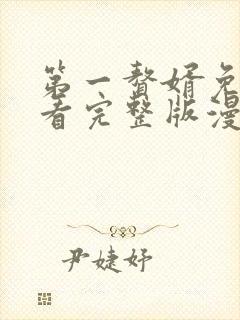 第一赘婿免
看完整版漫
尹婕妤